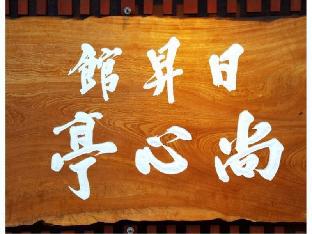 日昇館
尚心亭